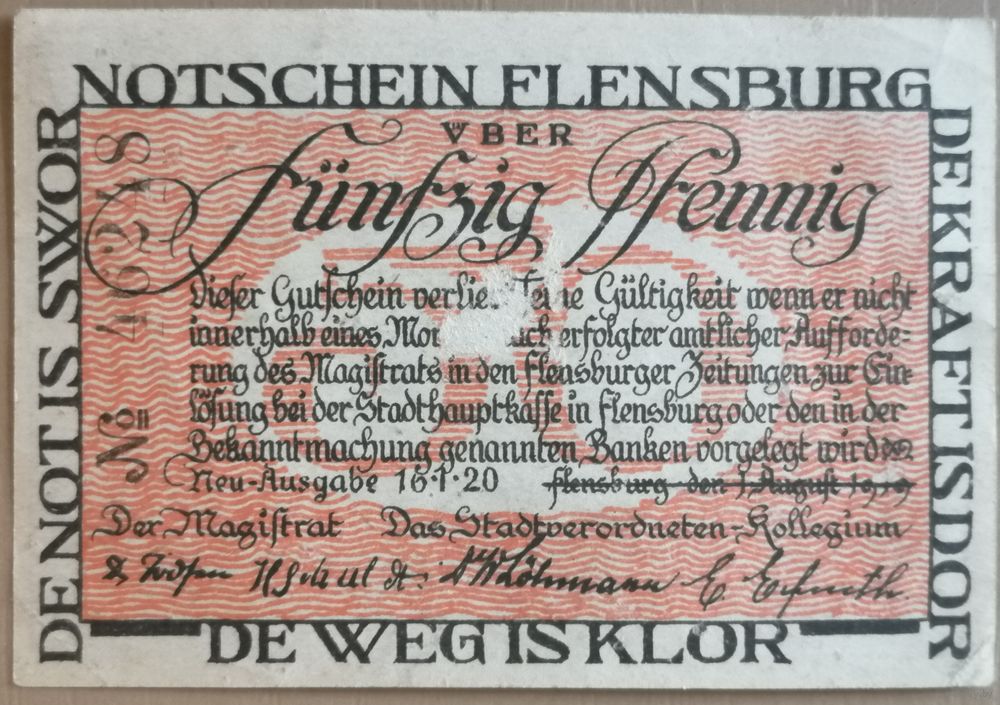 NOTSCHEIN FLENSBURG
DE NOT IS SWOR
DE KRAFT IS DOR
ÜBER
fünfzig Pfennig
Dieser Gutschein verlie ne Gültigkeit wenn er nicht
innerhalb eines Mo erfolgter amtlicher Aufforde-
rung des Magistrats in den Flensburger Zeitungen zur Ein-
lösung bei der Stadthauptkasse in Flensburg oder den in der
Bekanntmachung genannten Banken vorgelegt wird
Neu-Ausgabe 16·1·20 Flensburg den 1 August 1919
Der Magistrat Das Stadtverordneten-Kollegium
Löhmann
№ 46248
DE WEG IS KLOR